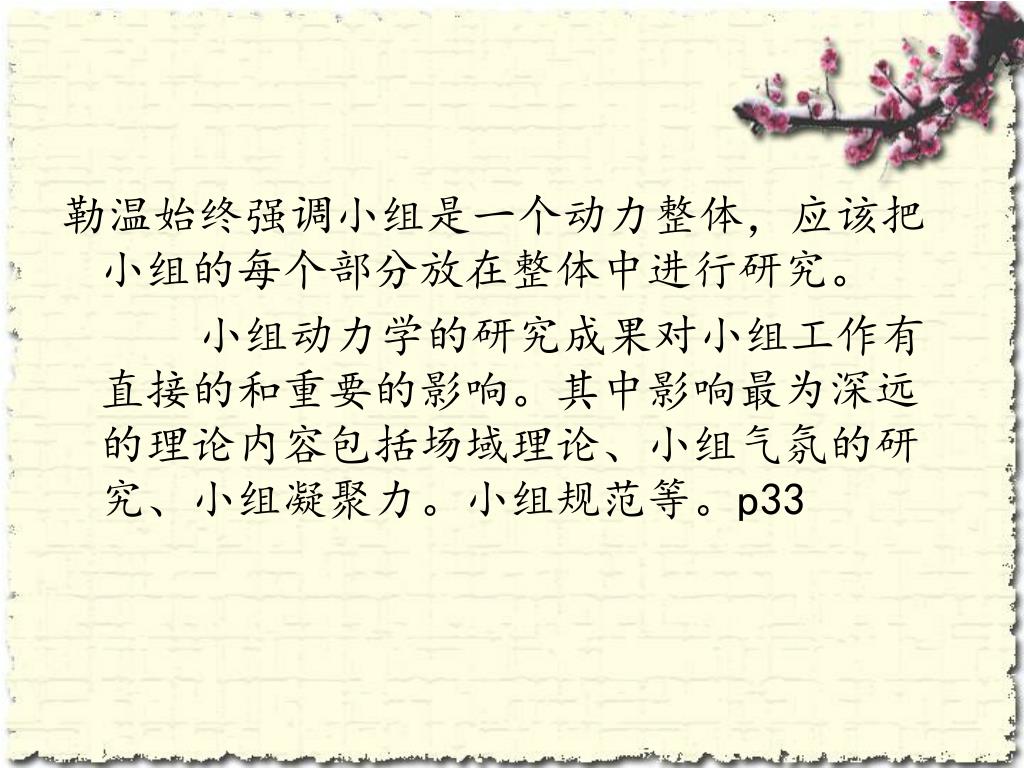 勒温始终强调小组是一个动力整体，应该把
小组的每个部分放在整体中进行研究。
小组动力学的研究成果对小组工作有
直接的和重要的影响。其中影响最为深远
的理论内容包括场域理论、小组气氛的研
究、小组凝聚力。小组规范等。p33